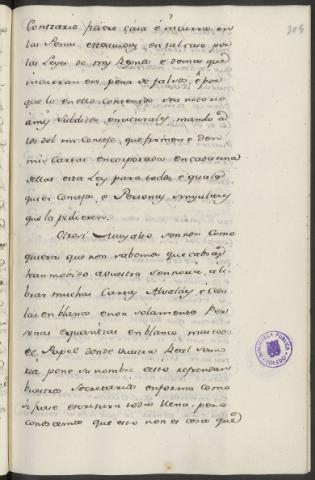 Contrario fiziere caia é incurra en
las Penas estatuidas, en tal caso por
las Leyes de my Reyno e demas que
incurran en pena de falsos, é por
que lo en ello contenido sea notorio
á mis Subditos, e naturales, mando á
los del mi Consejo, que firmen e den
mis Cartas encorporada en cada una
dellas esta Ley para todos é quales
quier Consejos, e Personas singulares
que la pidieren.
Otrosi Muy alto señor como
quiera que non sabemos que causas
han mobido a vuestra señoria, á li-
brar muchas Cartas Alvalaes é Cedu
las en blanco e non solamente Per
sonas e quantias en blanco mas to
do el Papel donde vuestra Real Seño
ria pone su nombre e esto refrendan
vuestros Secretarios en forma como
si fuese escritura toda llena, pero
conoscemos que esto non es cosa que
209
BIBLIOTECA PUBLICA
TOLEDO